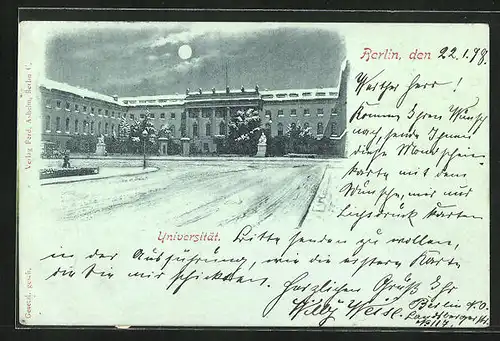 Berlin, den 22.1.98
Werther Herr!
Komme Ihren Wunsch
nach, sende Ihnen
diese Mondschein
karte mit dem
Wunsche, mir nur
karten
Universität. Bitte senden zu wollen,
in der Ausführung, wie die erstere Karte
die Sie mir schickten. Herzlichen Gruß Ihr
Willy Berlin N.O.
Landsbergerstr.
Verlag Ferd. Ashelm, Berlin
Gesetzl. gesch.